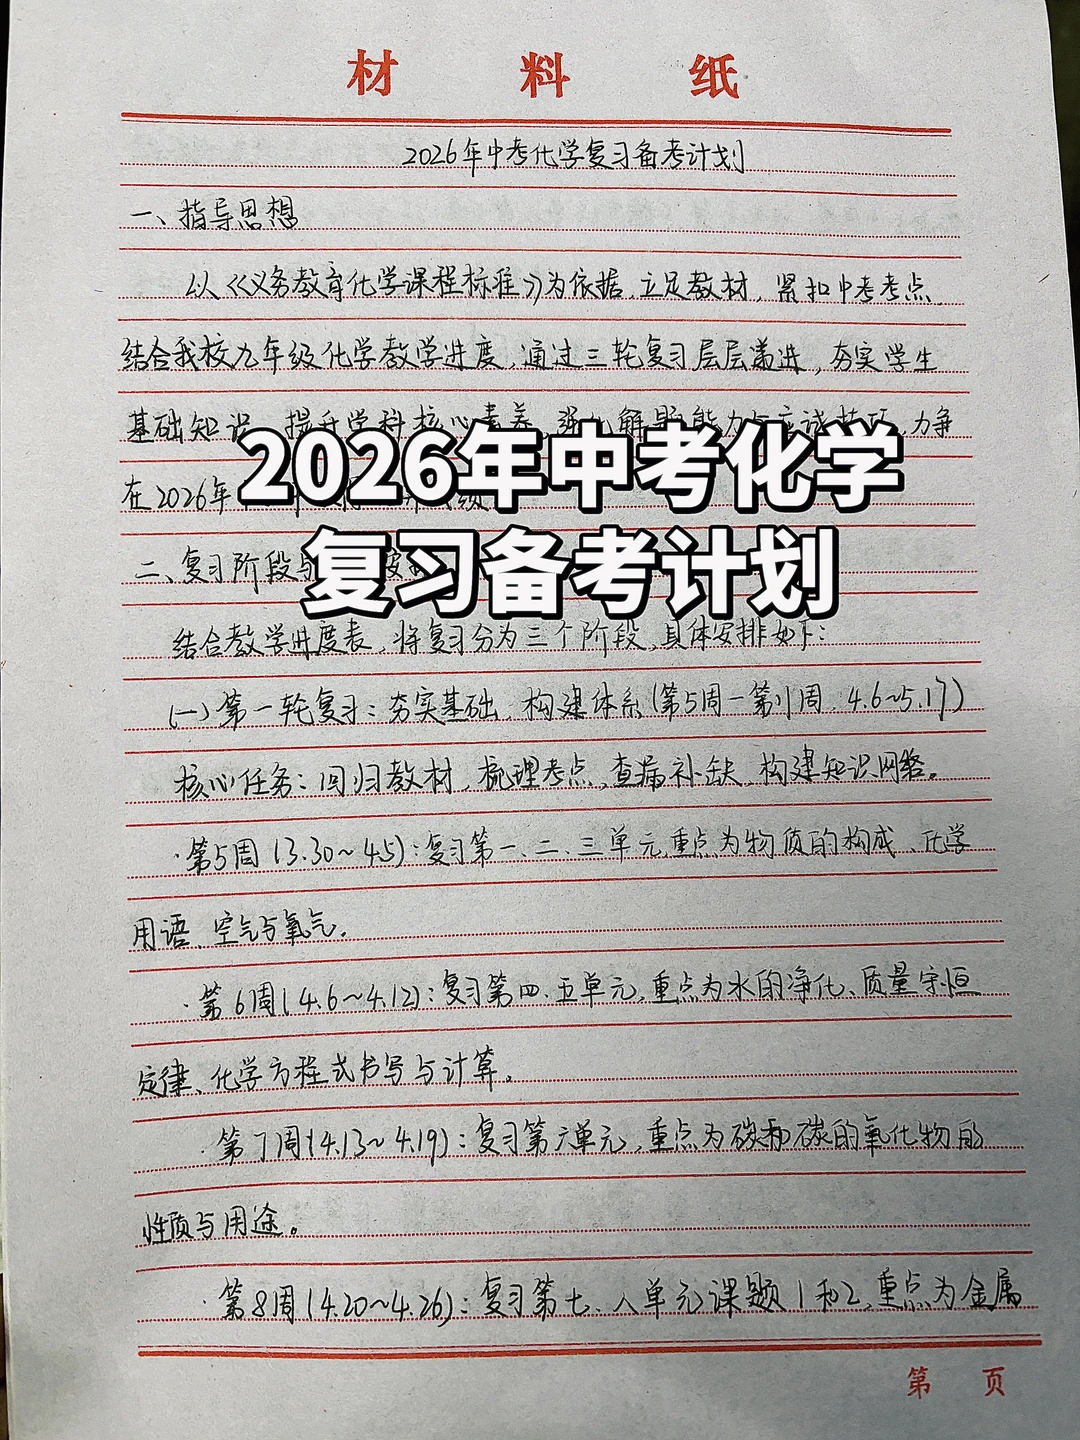 材料纸
2026年中考化学复习备考计划
一、指导思想
以《义务教育化学课程标准》为依据,立足教材,紧扣中考考点,
结合我校九年级化学教学进度,通过三轮复习层层递进,夯实学生
基础知识 提升学科核心素养,强化解题能力与应试技巧,力争
2026年中考化学
在2026年
二、复习阶段与
复习备考计划
结合教学进度表,将复习分为三个阶段,具体安排如下:
(一)第一轮复习:夯实基础,构建体系(第5周-第11周,4.6~5.17)
核心任务:回归教材,梳理考点,查漏补缺,构建知识网络。
·第5周(3.30~4.5):复习第一、二、三单元,重点为物质的构成、化学
用语、空气与氧气。
·第6周(4.6~4.12):复习第四、五单元,重点为水的净化、质量守恒
定律、化学方程式书写与计算。
·第7周(4.13~4.19):复习第六单元,重点为碳和碳的氧化物的
性质与用途。
·第8周(4.20~4.26):复习第七、八单元课题1和2,重点为金属
第 页